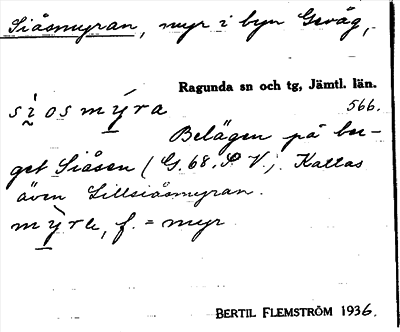 Siåsmyran, myr i byn Gevåg,
Ragunda sn och tg, Jämtl. län.
566.
sìosmýra
Belägen på ber-
get Siåsen (G. 68. S V.). Kallas
även Lillsiåsmyran.
mỳre, f. = myr
BERTIL FLEMSTRÖM 1936.